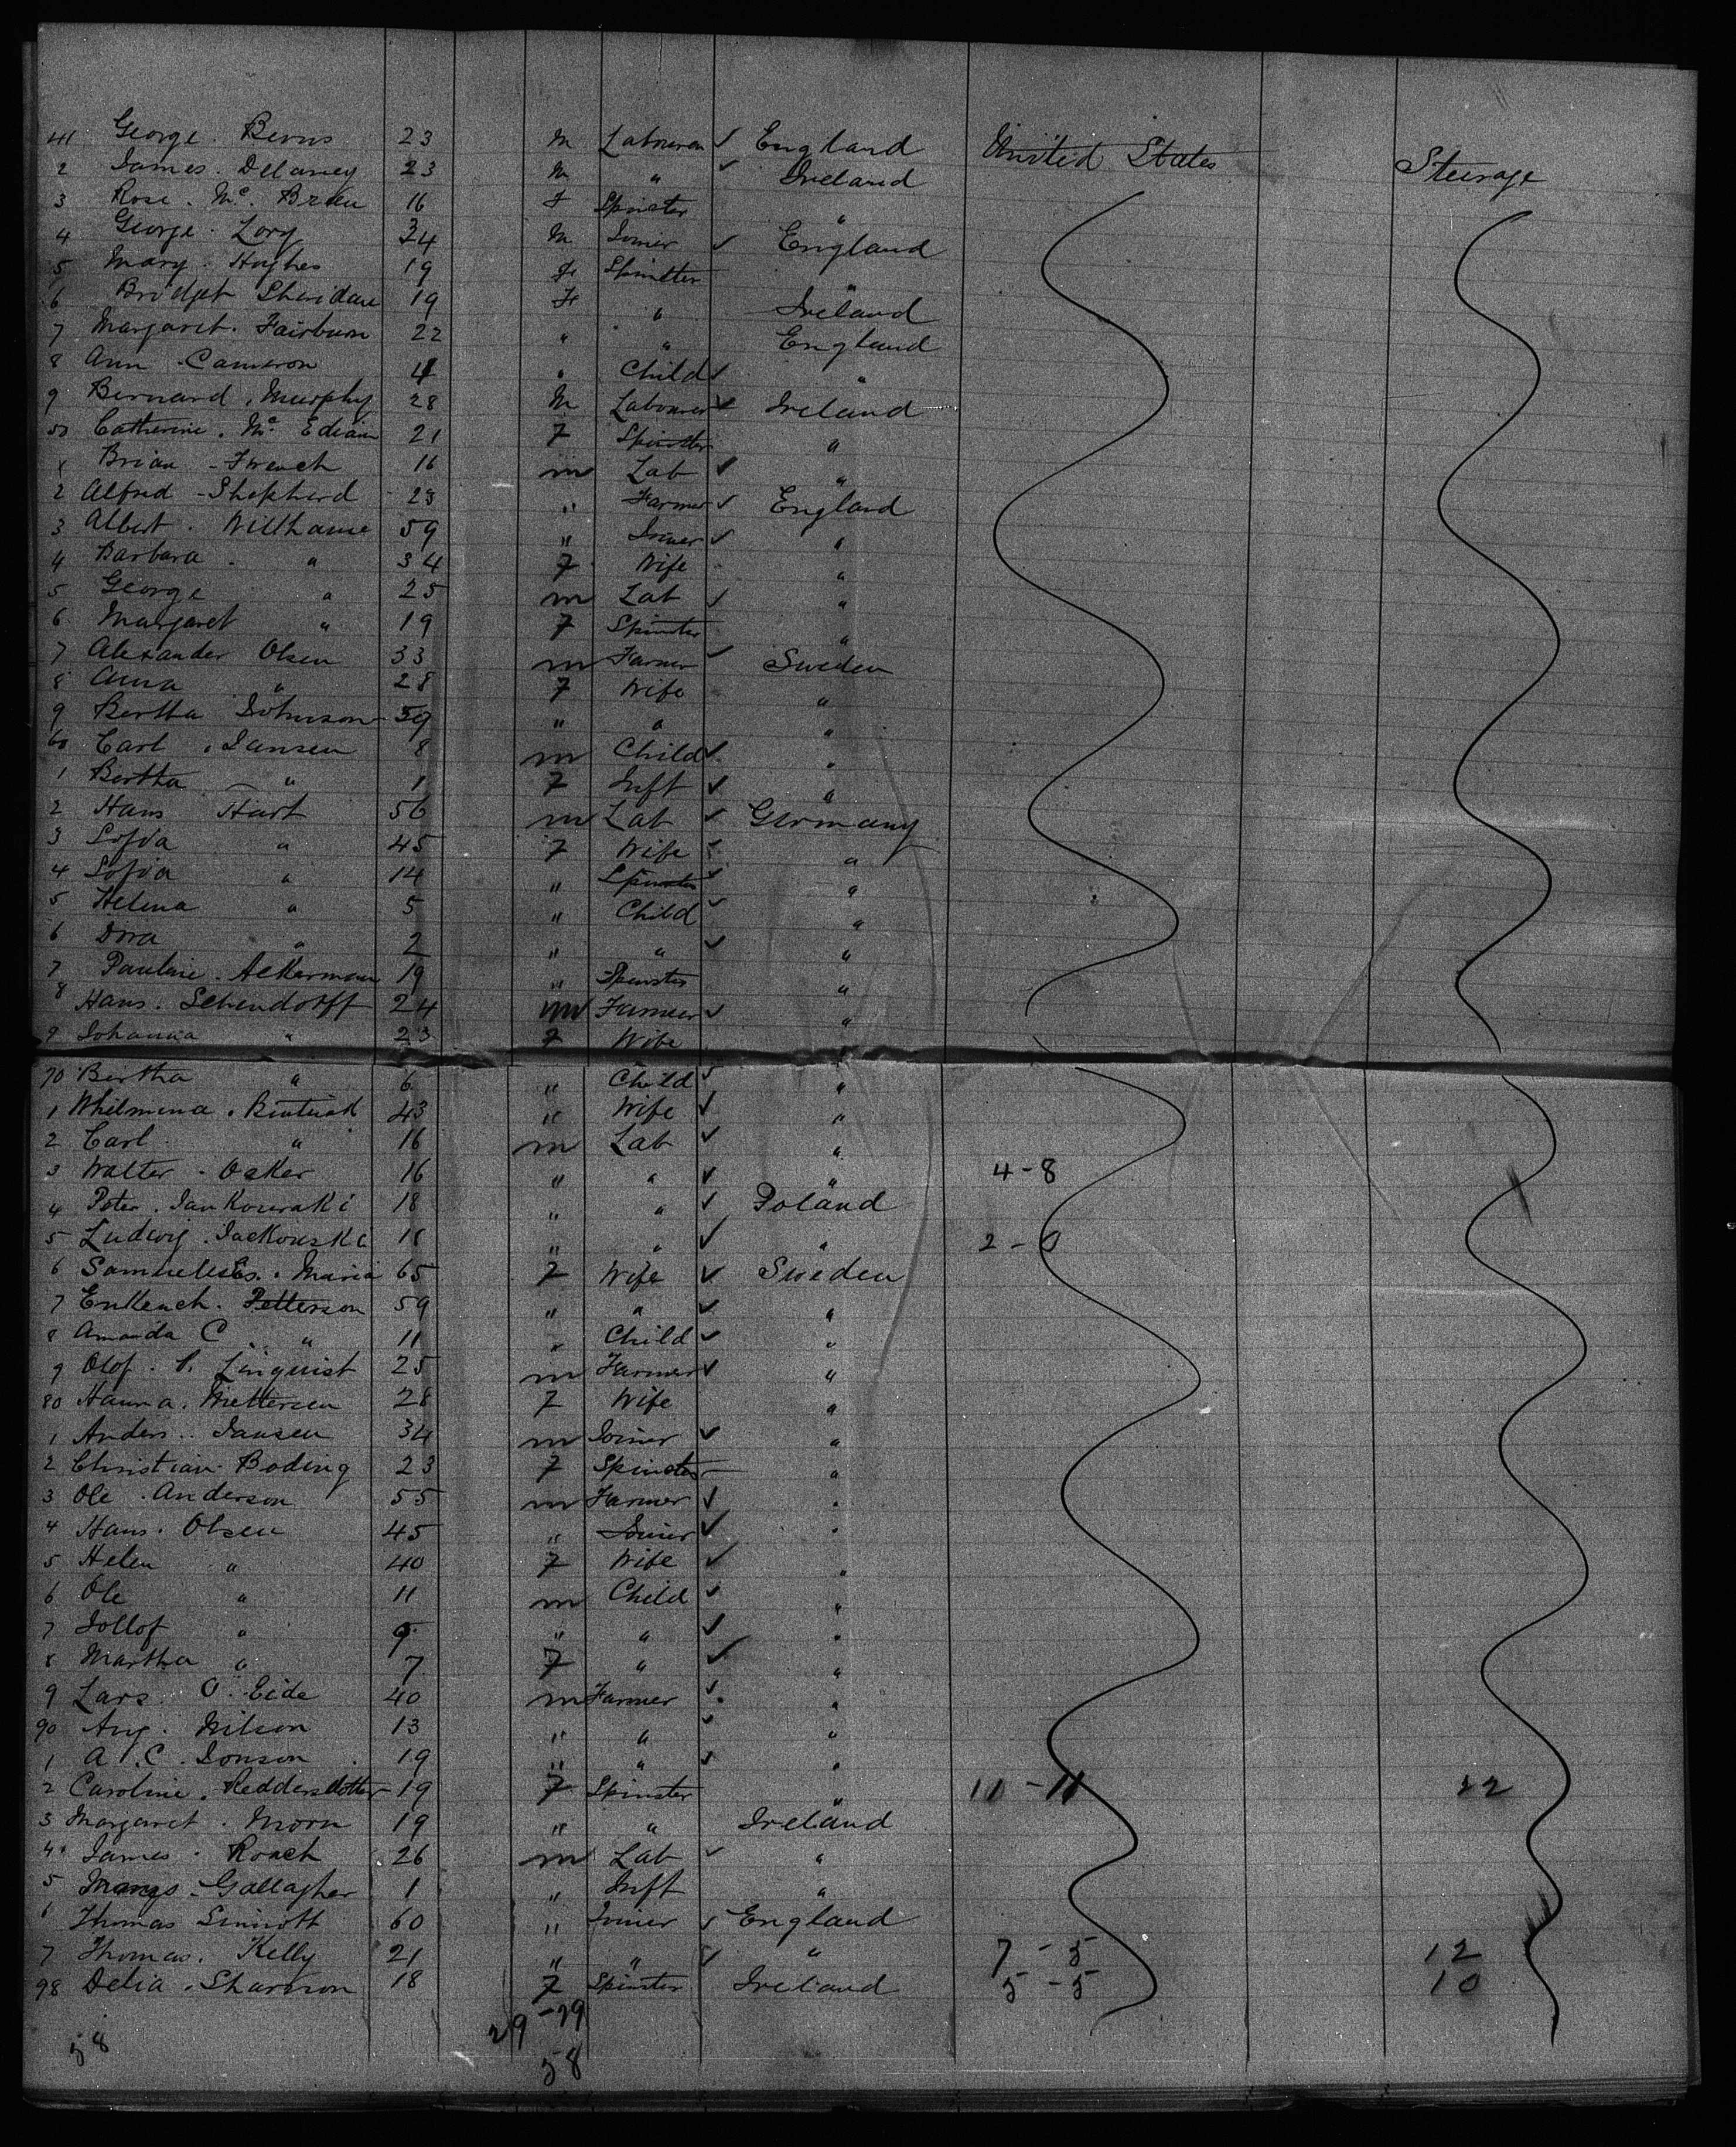 41 George. Berns 23 M Labourer ✓ England United States Steerage
2 James. Delaney 23 M " ✓ Ireland
3 Rose. Mc. 16 F Spinster "
4 George. Lory 34 M Joiner ✓ England
5 Mary. Hughes 19 F Spinster "
6 Bridget Sheridan 19 F " Ireland
7 Margaret. Fairburn 22 " " England
8 Ann Cameron 4 " Child ✓ "
9 Bernard. Murphy 28 M Labourer ✓ Ireland
50 Catherine. Mc 21 F Spinster "
1 Brian - French 16 m Lab ✓ "
2 Alfred - Shepherd 23 " Farmer ✓ England
3 Albert. 59 " Joiner ✓ "
4 Barbara. " 34 F Wife "
5 George " 25 m Lab ✓ "
6 Margaret " 19 F Spinster "
7 Alexander Olsen 33 m Farmer ✓ Sweden
8 Anna " 28 F Wife "
9 Bertha Johnson 59 " " "
60 Carl. Jansen 8 m Child ✓ "
1 Bertha " 1 F Inft ✓ "
2 Hans Hart 56 m Lab ✓ Germany
3 Sofia " 45 F Wife ✓ "
4 Sofia " 14 " Spinster ✓ "
5 Helena " 5 " Child ✓ "
6 Dora " 2 " " ✓ "
7 Pauline. Ackermann 19 " Spinster "
8 Hans. Schendorff 24 m Farmer ✓ "
9 Johanna " 23 F Wife
70 Bertha " 6 " Child ✓ "
1 Whilmina. 43 " Wife ✓ "
2 Carl " 16 m Lab ✓ "
3 Walter - Oaker 16 " " ✓ " 4-8
4 Peter. Jankowski 18 " " ✓ Poland
5 Ludwig. Jackowski " " ✓ " 2-0
6 Maria 65 F Wife ✓ Sweden
7 Petterson 59 " " ✓ "
8 Amanda C " 11 " Child ✓ "
9 Olof. Linquist 25 m Farmer ✓ "
80 Hanna. 28 F Wife "
1 Anders. Jansen 34 m Joiner ✓ "
2 Christian Boding 23 F Spinster "
3 Ole. Anderson 55 m Farmer ✓ "
4 Hans. Olsen 45 " Joiner ✓ "
5 Helen " 40 F Wife ✓ "
6 Ole " 11 m Child ✓ "
7 Jollof " 9 " " ✓ "
8 Martha " 7 F " ✓ "
9 Lars. O. Eide 40 m Farmer ✓ "
90 Aug. Nilson 13 " " ✓ "
1 A. C. Jonson 19 " " ✓ "
2 Caroline. 19 F Spinster " 11-11 22
3 Margaret. Morn 19 " " Ireland
4 James. Roach 26 m Lab ✓ "
5 Gallagher 1 " Inft "
6 Thomas Sinnott 60 " Joiner ✓ England
7 Thomas. Kelly 21 " " ✓ " 7-5 12
98 Delia. Shannon 18 F Spinster Ireland 5-5 10
29-29
58 58